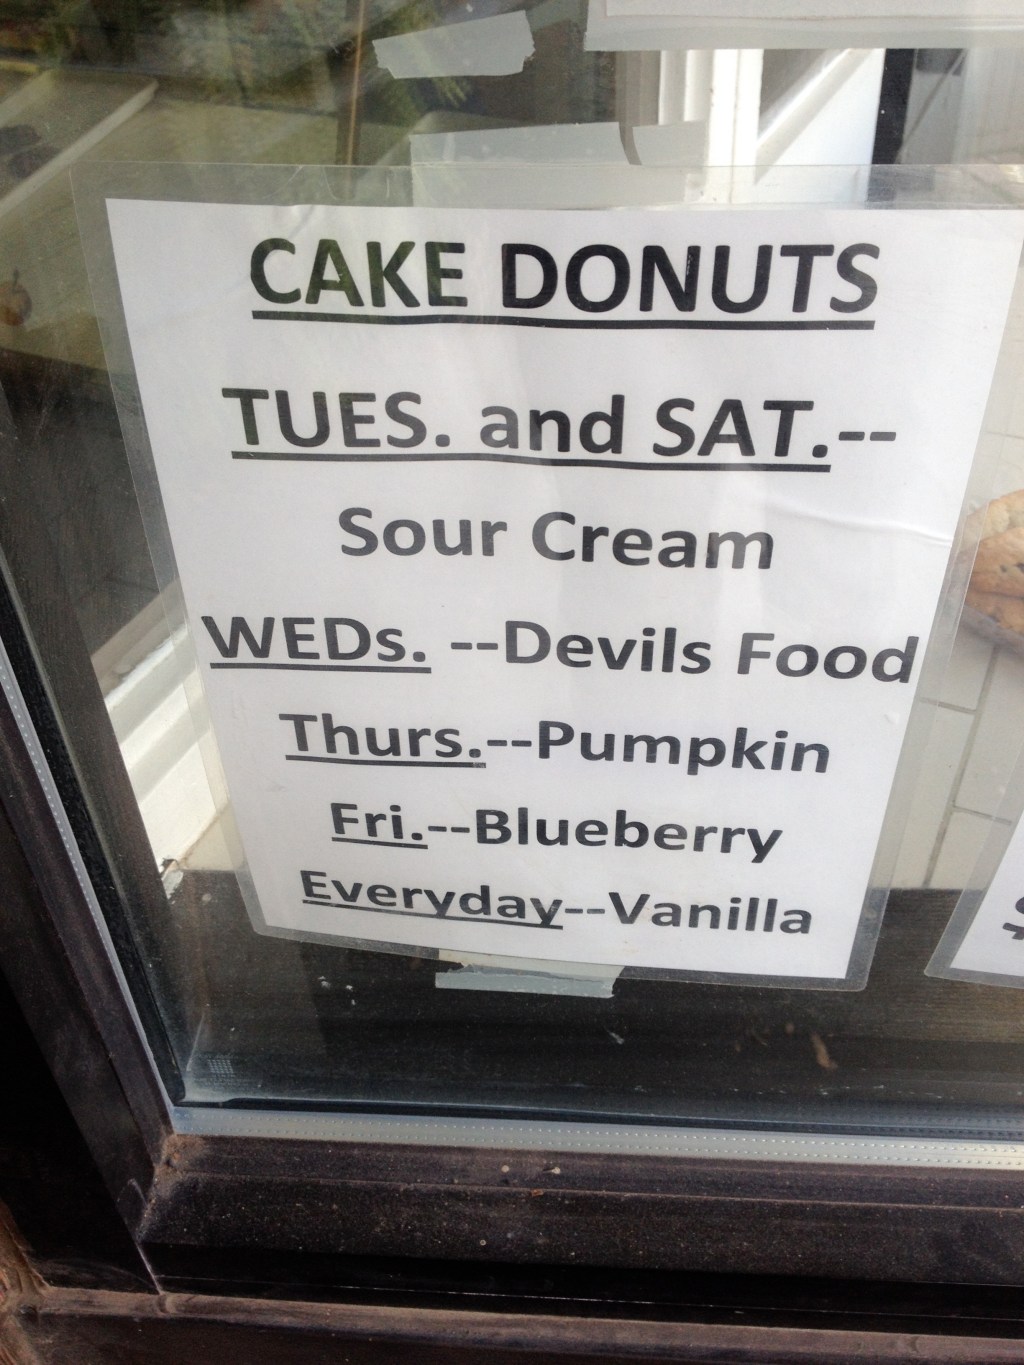 CAKE DONUTS
TUES. and SAT.--
Sour Cream
WEDs. --Devils Food
Thurs.--Pumpkin
Fri.--Blueberry
Everyday--Vanilla